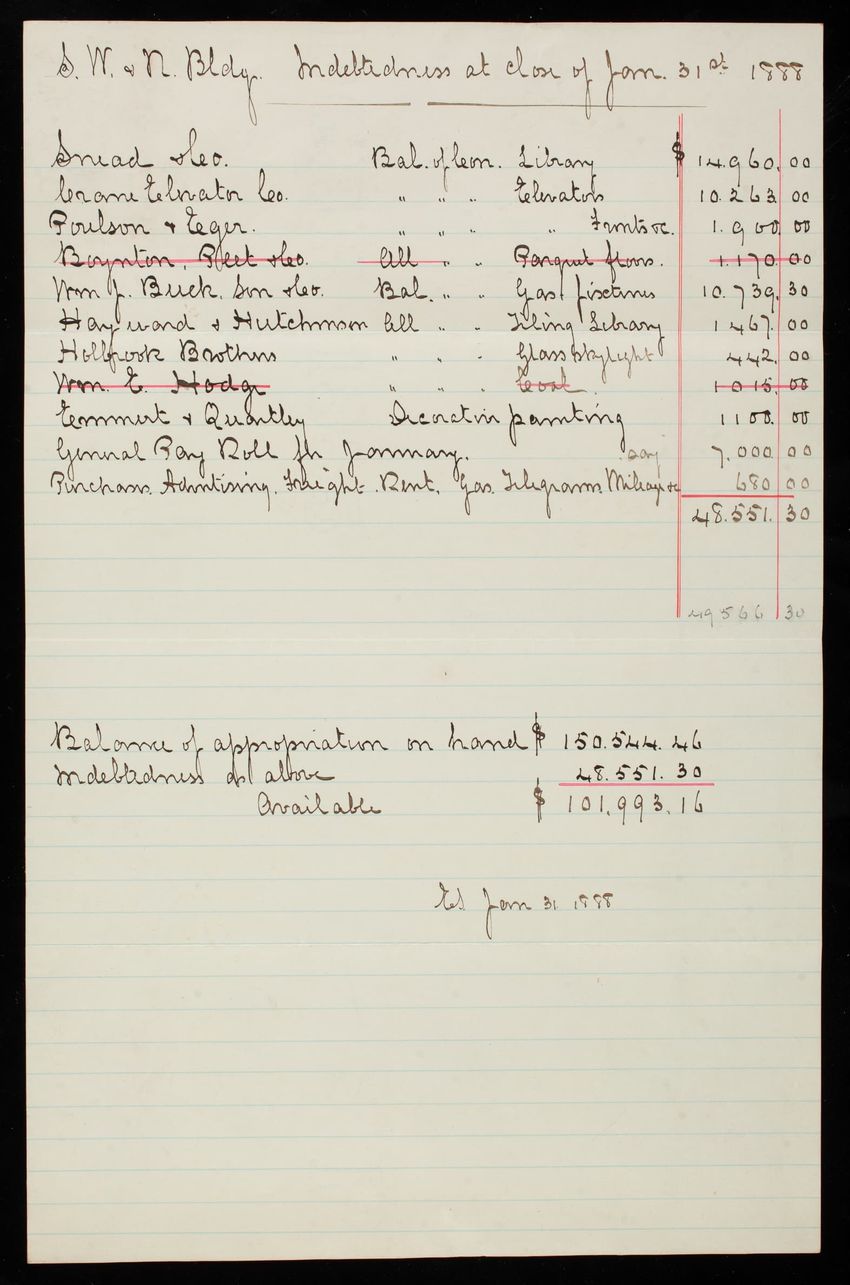 S. W. & N. Bldg. Indebtedness at close of Jan. 31st 1888
Snead & Co. Bal. of Con. Library $ 14.960. 00
Crane Elevator Co. " " " Elevators 10.263 00
Poulson & Eger. " " " " Frmts &c. 1.900 00
Boynton, Peet & Co. All " " Parquet floors. 1.170. 00
Wm J. Buck, Son & Co. Bal. " " Gas fixtures 10.739. 30
Hayward & Hutchinson All " " Tiling Library 1467. 00
Holbrook Brothers " " " Glass skylight 442. 00
Wm. E. Hodge " " " Coal. 1015. 00
Emmert & Quartley Decorative painting 1100. 00
General Pay Roll for January. say 7.000. 00
Purchases. Advertising, Freight. Rent, Gas. Telegrams. Mileage &c 680 00
48.551. 30
49566 30
Balance of appropriation on hand $ 150.544. 46
Indebtedness as above 48.551. 30
Available $ 101,993. 16
Jan 31 1888